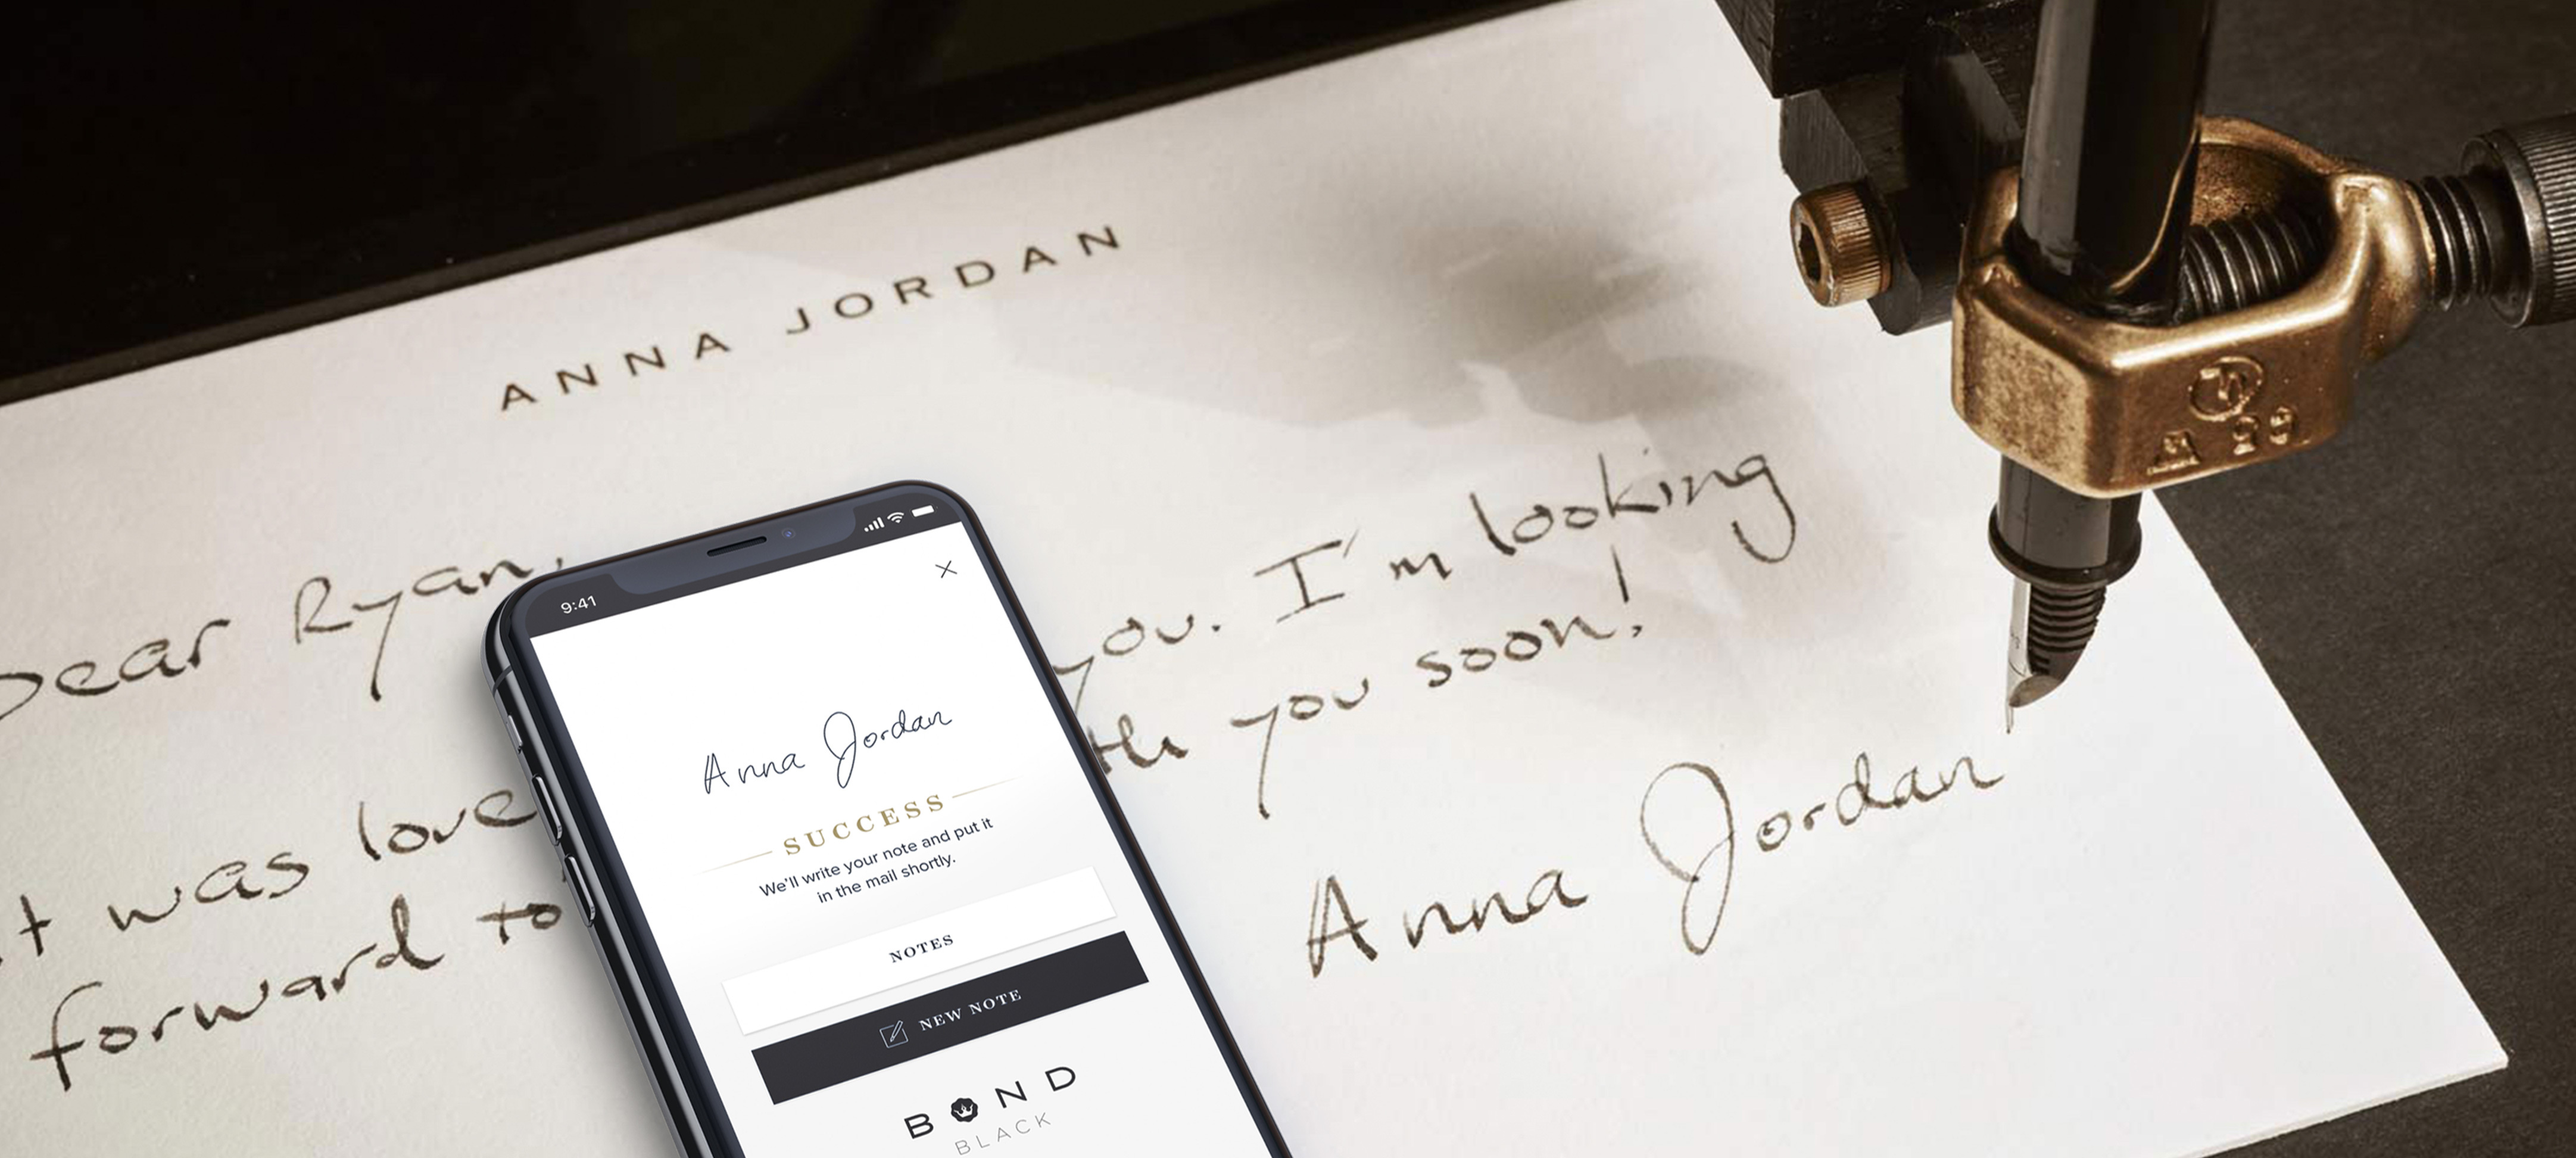 ANNA JORDAN
Dear Ryan,
It was love you. I'm looking
forward to you soon!
Anna Jordan
9:41
Anna Jordan
SUCCESS
We'll write your note and put it
in the mail shortly.
NOTES
NEW NOTE
BOND
BLACK